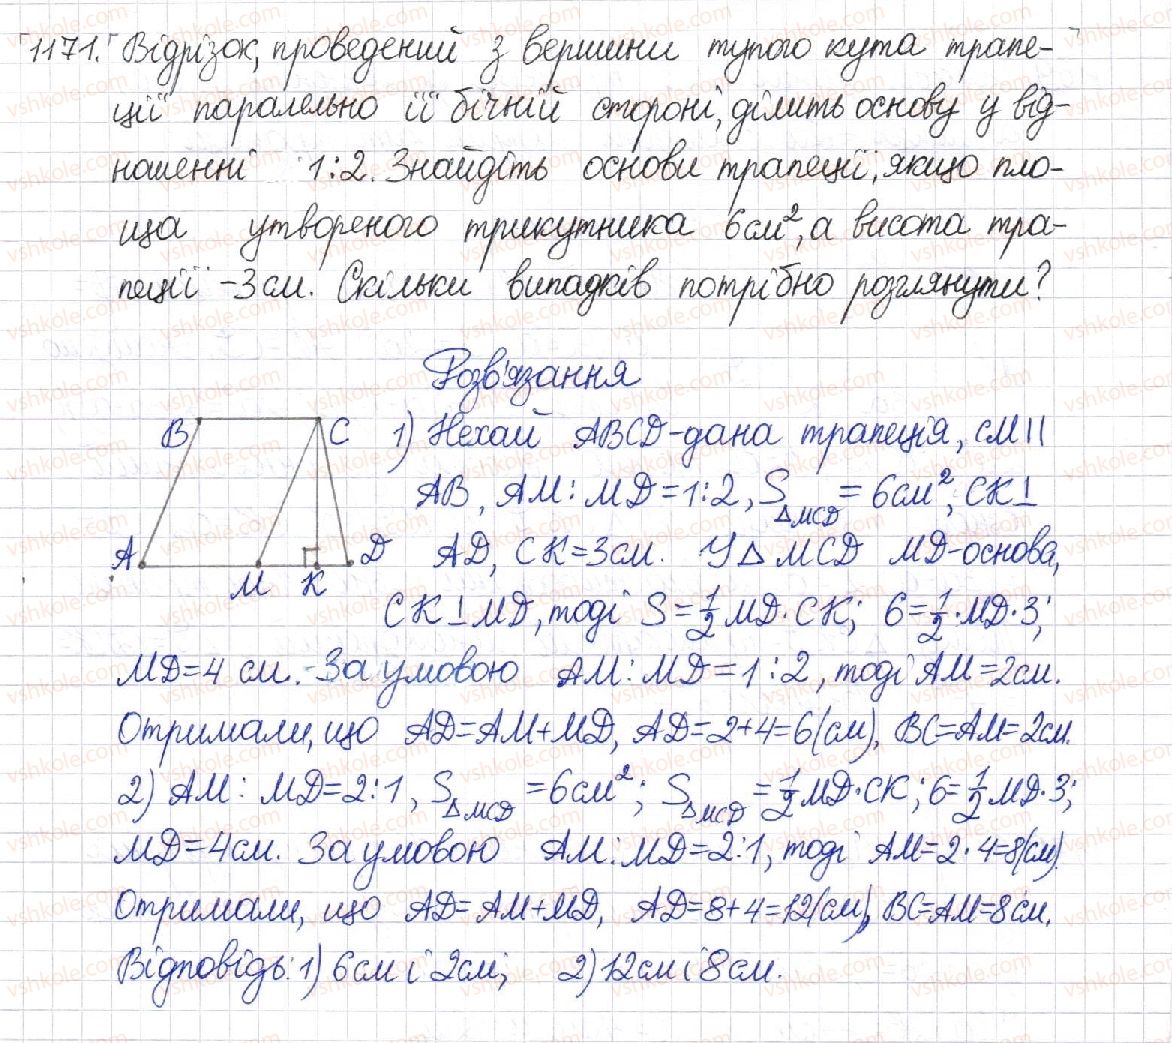 1171. Відрізок, проведений з вершини тупого кута трапе-
ції паралельно її бічній стороні, ділить основу у від-
ношенні 1:2. Знайдіть основи трапеції, якщо пло-
ща утвореного трикутника 6см², а висота тра-
пеції -3см. Скільки випадків потрібно розглянути?
Розв'язання
B C 1) Нехай ABCD-дана трапеція, CM||
AB, AM:MD=1:2, S△MCD = 6см², CK⊥
A M K D AD, CK=3см. У △MCD MD-основа,
CK⊥MD, тоді S=1/2 MD·CK; 6=1/2·MD·3;
MD=4 см. -За умовою AM:MD=1:2, тоді AM=2см.
Отримали, що AD=AM+MD, AD=2+4=6(см), BC=AM=2см.
2) AM:MD=2:1, S△MCD=6см²; S△MCD=1/2MD·CK; 6=1/2MD·3;
MD=4см. За умовою AM:MD=2:1, тоді AM=2·4=8(см).
Отримали, що AD=AM+MD, AD=8+4=12(см), BC=AM=8см.
Відповідь: 1) 6см і 2см; 2) 12см і 8см.